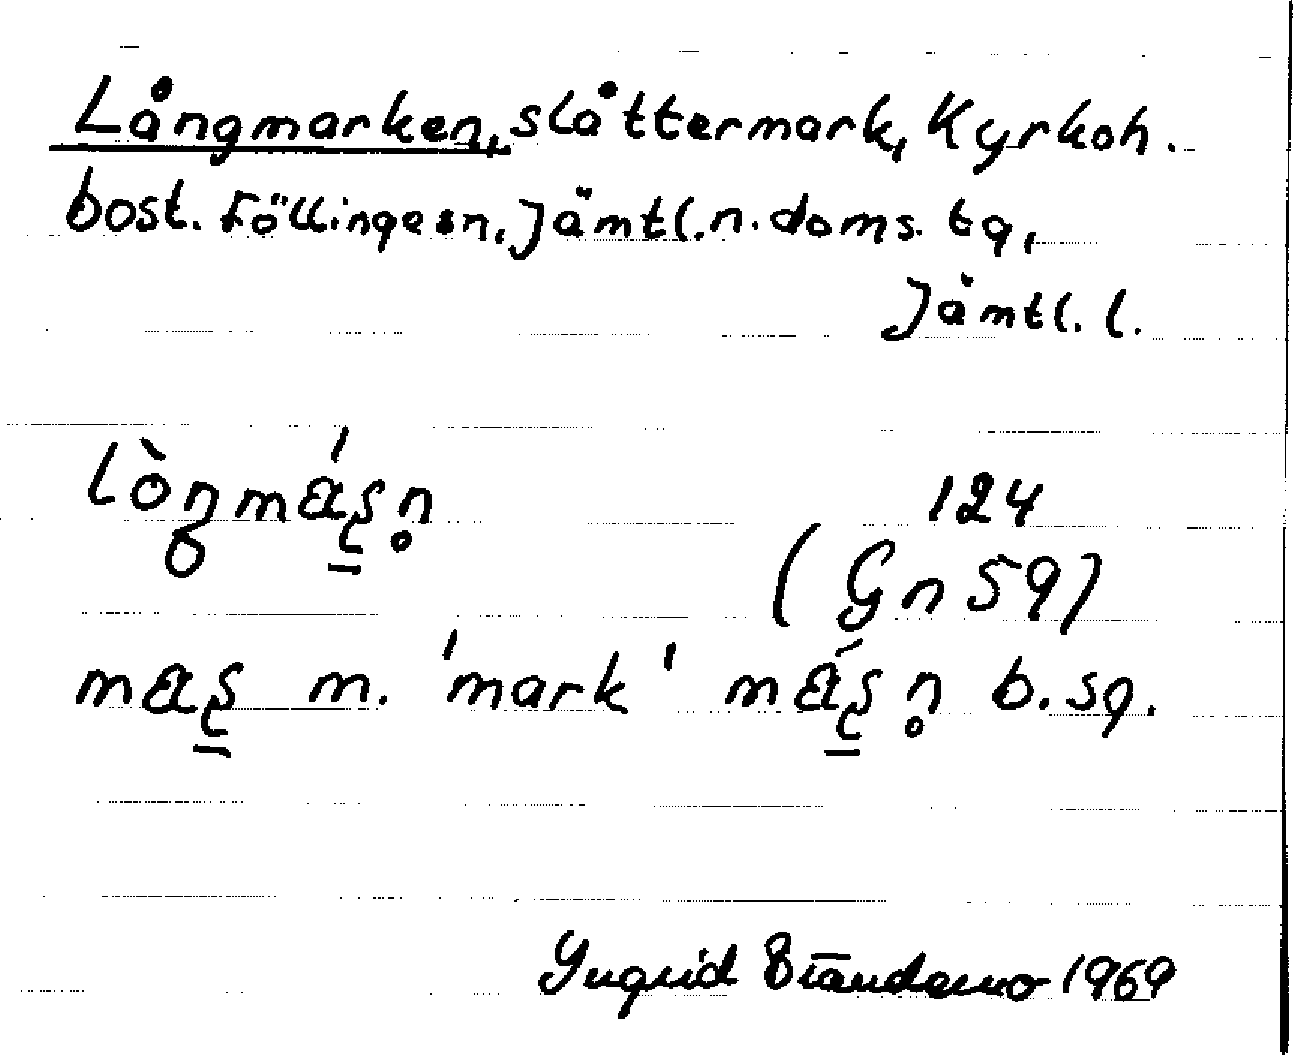 Långmarken, slåttermark, Kyrkoh.
bost. Föllinge sn, Jämtl. n. doms. tg,
Jämtl. l.
lòŋmáʂn̥
124
(Gn 59)
maʂ m. 'mark' máʂn̥ b. sg.
Ingrid 1969